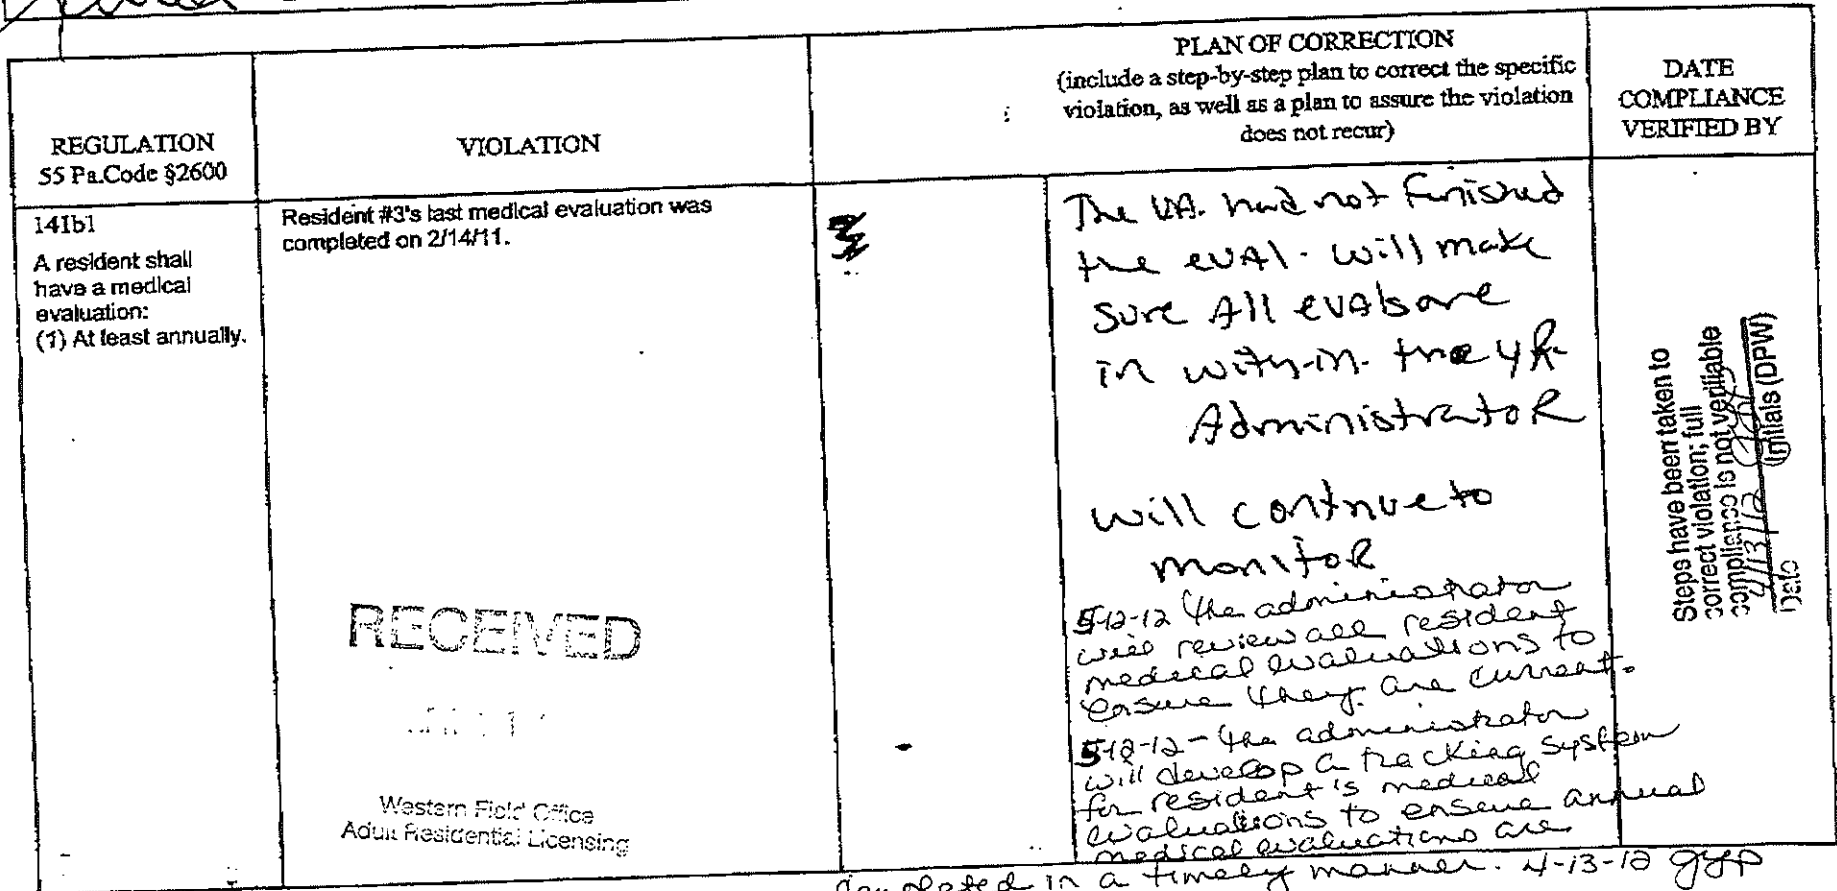 REGULATION
55 Pa.Code §2600
VIOLATION
PLAN OF CORRECTION
(include a step-by-step plan to correct the specific
violation, as well as a plan to assure the violation
does not recur)
DATE
COMPLIANCE
VERIFIED BY
141b1
A resident shall
have a medical
evaluation:
(1) At least annually.
Resident #3's last medical evaluation was
completed on 2/14/11.
The VA. had not Finished
the evAl. will make
sure All evAls are
in with-in the yR.
AdministratoR
will contnue to
monitoR
5-12-12 the administrator
will review all resident
medical evaluations to
ensure they are current.
5-12-12 - the administrator
will develop a tracking system
for resident's medical
evaluations to ensure annual
medical evaluations are
completed in a timely manner. 4-13-12 gyp
Steps have been taken to
correct violation; full
compliance is not verifiable
4/13/12
Date (Initials (DPW)
RECEIVED
Western Field Office
Adult Residential Licensing